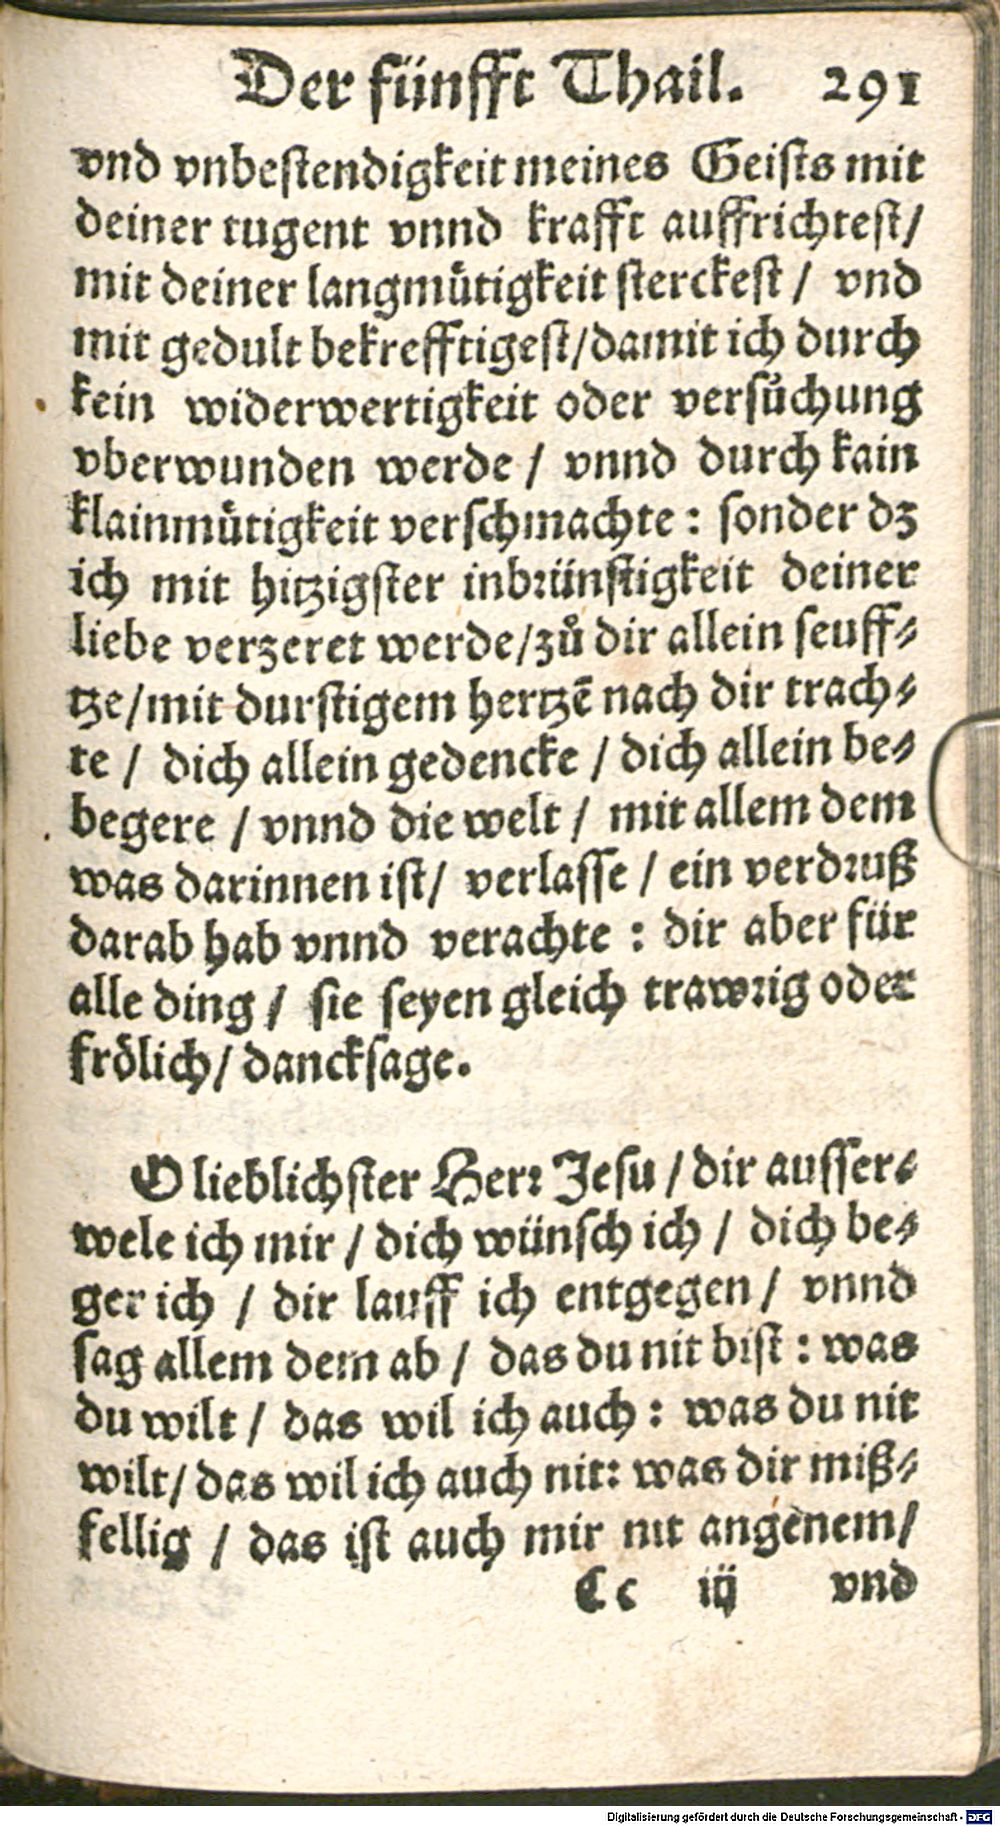 Der fünfft Thail. 291
vnd vnbestendigkeit meines Geists mit
deiner tugent vnnd krafft auffrichtest/
mit deiner langmuͤtigkeit sterckest / vnd
mit gedult bekrefftigest/damit ich durch
kein widerwertigkeit oder versuͤchung
vberwunden werde / vnnd durch kain
klainmuͤtigkeit verschmachte : sonder dz
ich mit hitzigster inbrünstigkeit deiner
liebe verzeret werde/zuͦ dir allein seuff⸗
tze/mit durstigem hertzē nach dir trach⸗
te / dich allein gedencke / dich allein be⸗
begere / vnnd die welt / mit allem dem
was darinnen ist/ verlasse / ein verdruß
darab hab vnnd verachte : dir aber für
alle ding / sie seyen gleich trawrig oder
froͤlich/ dancksage.
O lieblichster Herr Jesu / dir ausser⸗
wele ich mir / dich wünsch ich / dich be⸗
ger ich / dir lauff ich entgegen / vnnd
sag allem dem ab / das du nit bist : was
du wilt / das wil ich auch : was du nit
wilt/ das wil ich auch nit: was dir miß⸗
fellig / das ist auch mir nit angenem/
Cc iij vnd
Digitalisierung gefördert durch die Deutsche Forschungsgemeinschaft - DFG